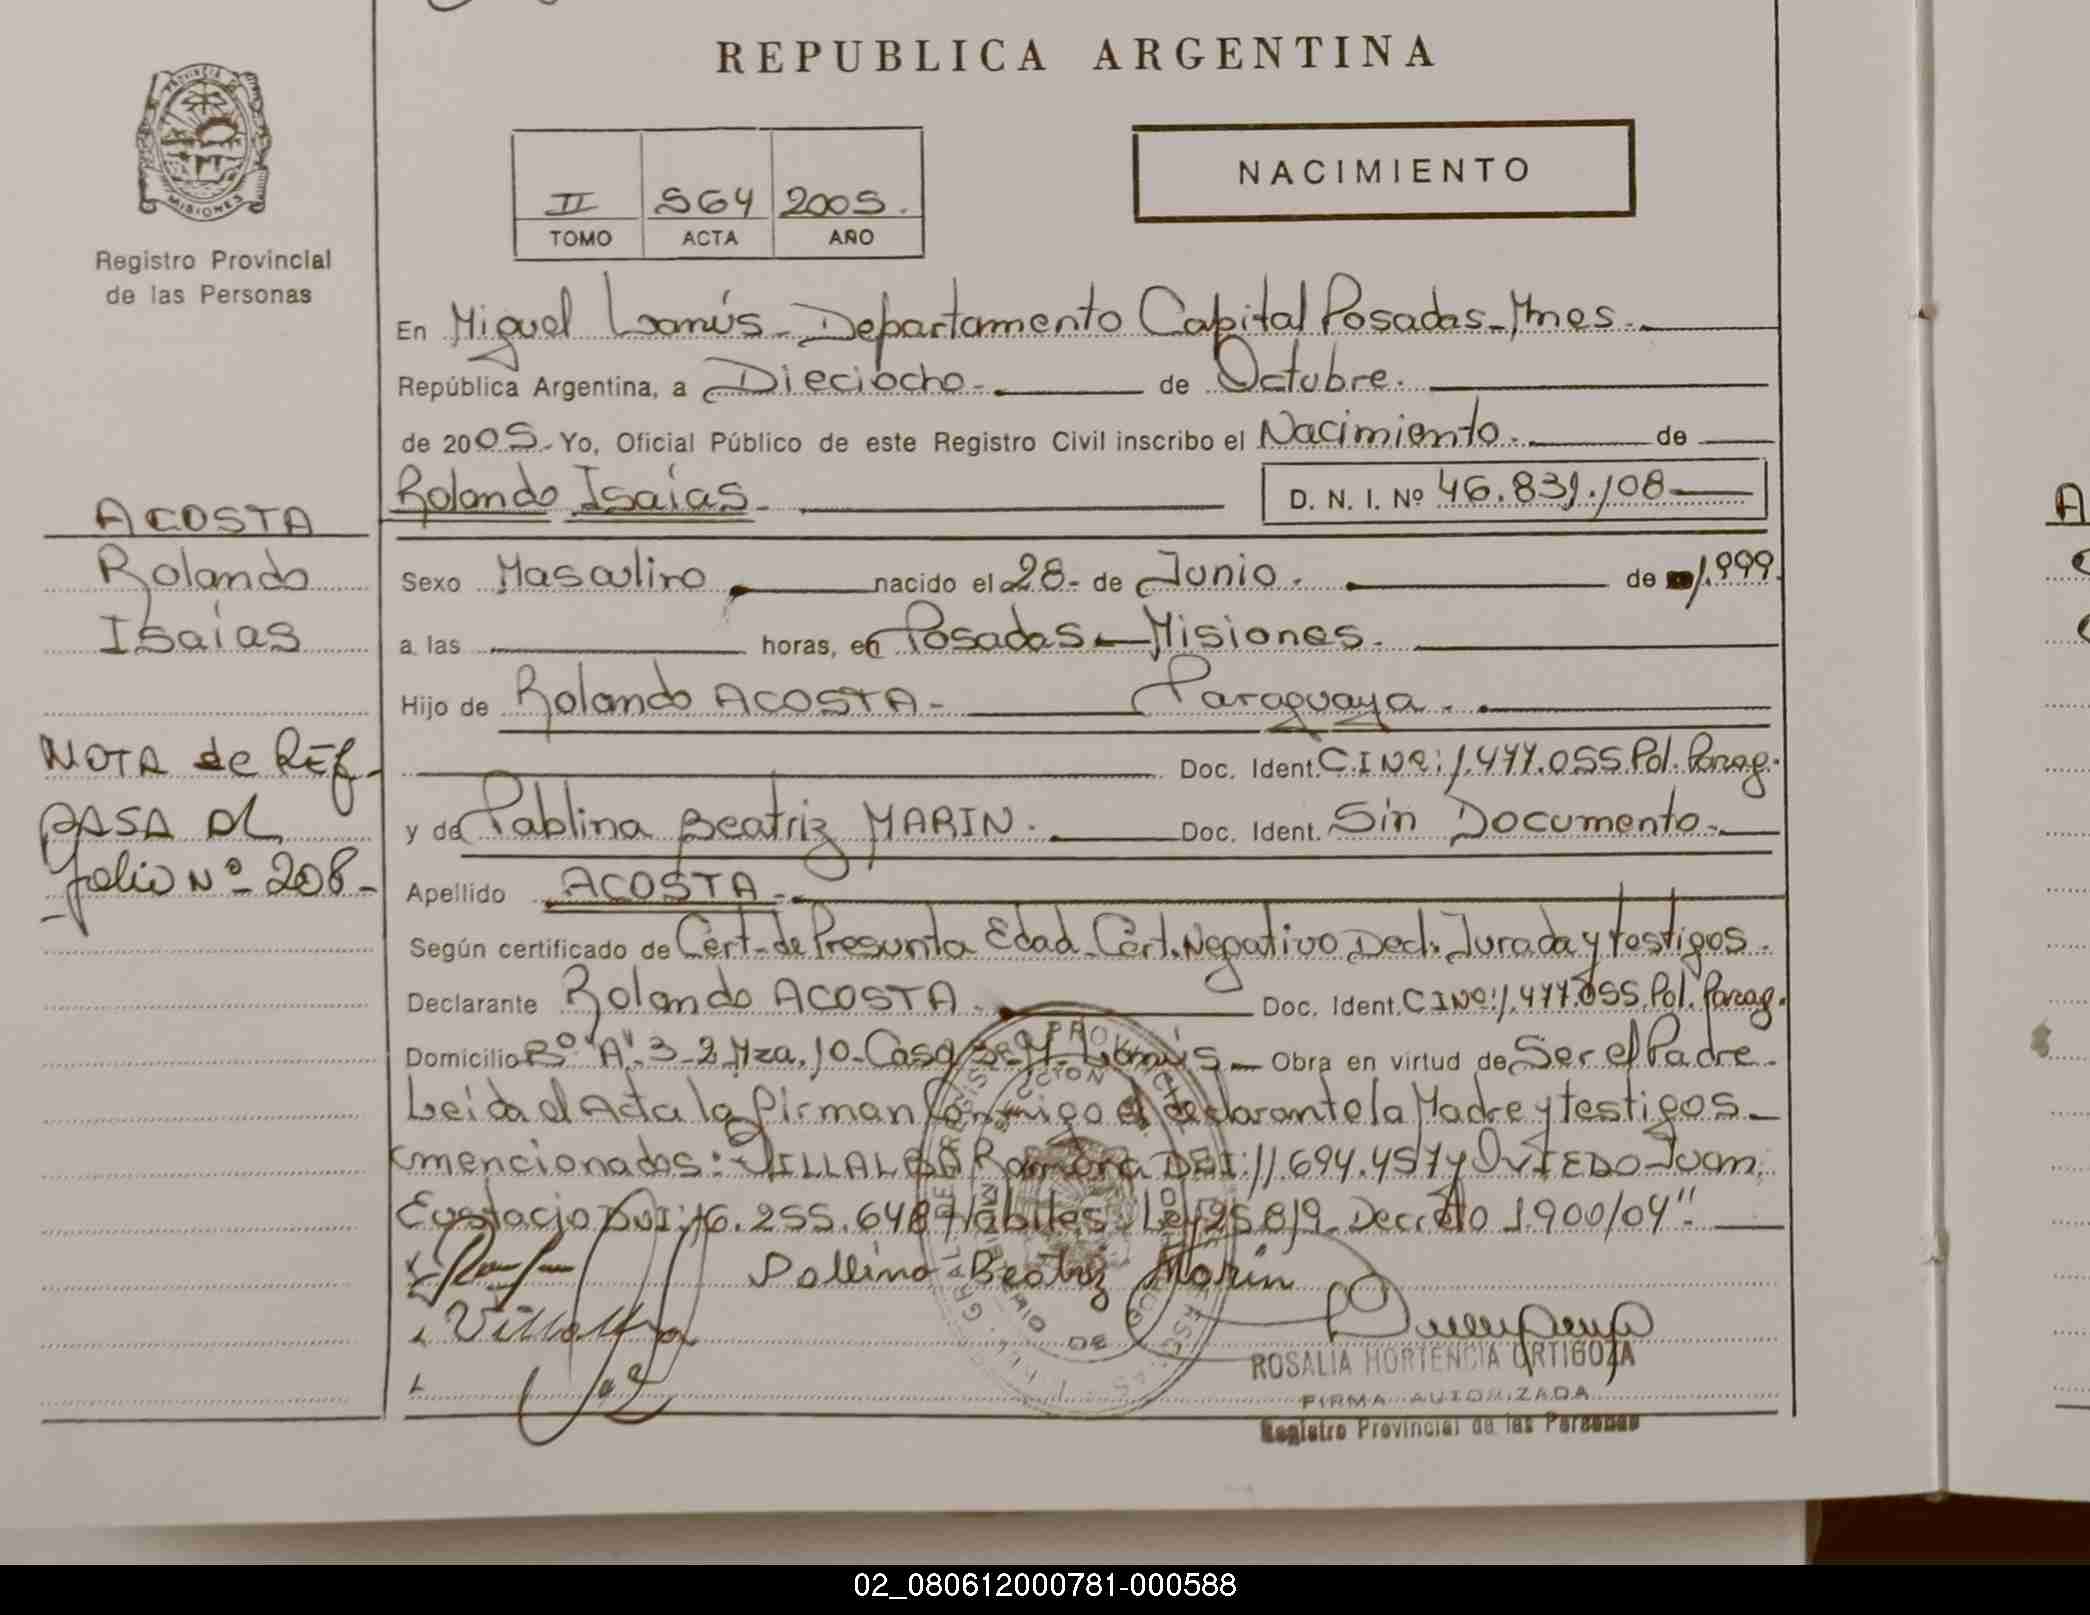 REPUBLICA ARGENTINA
PROVINCIA DE MISIONES
Registro Provincial
de las Personas
II 564 2005.
TOMO ACTA AÑO
NACIMIENTO
En Miguel Lanús - Departamento Capital Posadas - Mnes.
República Argentina, a Dieciocho. de Octubre.
de 2005. Yo, Oficial Público de este Registro Civil inscribo el Nacimiento. de
Rolando Isaías. D. N. I. Nº 46.831.108
Sexo Masculino nacido el 28 - de Junio. de 1.999.
a las horas, en Posadas - Misiones.
Hijo de Rolando ACOSTA - Paraguaya.
Doc. Ident. C.I Nº: 1.477.055 Pol. Parag.
y de Pablina Beatriz MARIN. Doc. Ident. Sin Documento.
Apellido ACOSTA.
Según certificado de Cert. de Presunta Edad - Cert. Negativo Decl. Jurada y testigos.
Declarante Rolando ACOSTA. Doc. Ident. C I Nº: 1.477.055. Pol. Parag.
Domicilio Bº "A". 3-2 Mza. 10 - Casa M. Lanús - Obra en virtud de Ser el Padre.
Leída el Acta la firman conmigo el declarante la Madre y testigos
mencionados: VILLALBA Ramona DNI: 11.694.457 y OVIEDO Juan
Eustacio DNI: 16.255.648 Hábiles. Ley 25.819 Decreto 1.900/04".
Pablina Beatriz Marin
Villalba
ROSALIA HORTENCIA ORTIGOZA
FIRMA AUTORIZADA
Registro Provincial de las Personas
ACOSTA
Rolando
Isaías
NOTA de REf.
PASA AL
folio Nº 208 -
A
02_080612000781-000588